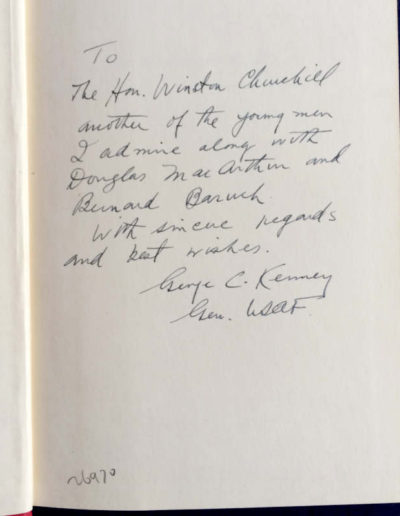 To
The Hon. Winston Churchill
another of the young men
I admire along with
Douglas MacArthur and
Bernard Baruch
With sincere regards
and best wishes.
George C. Kenney
Gen. USAF
26970